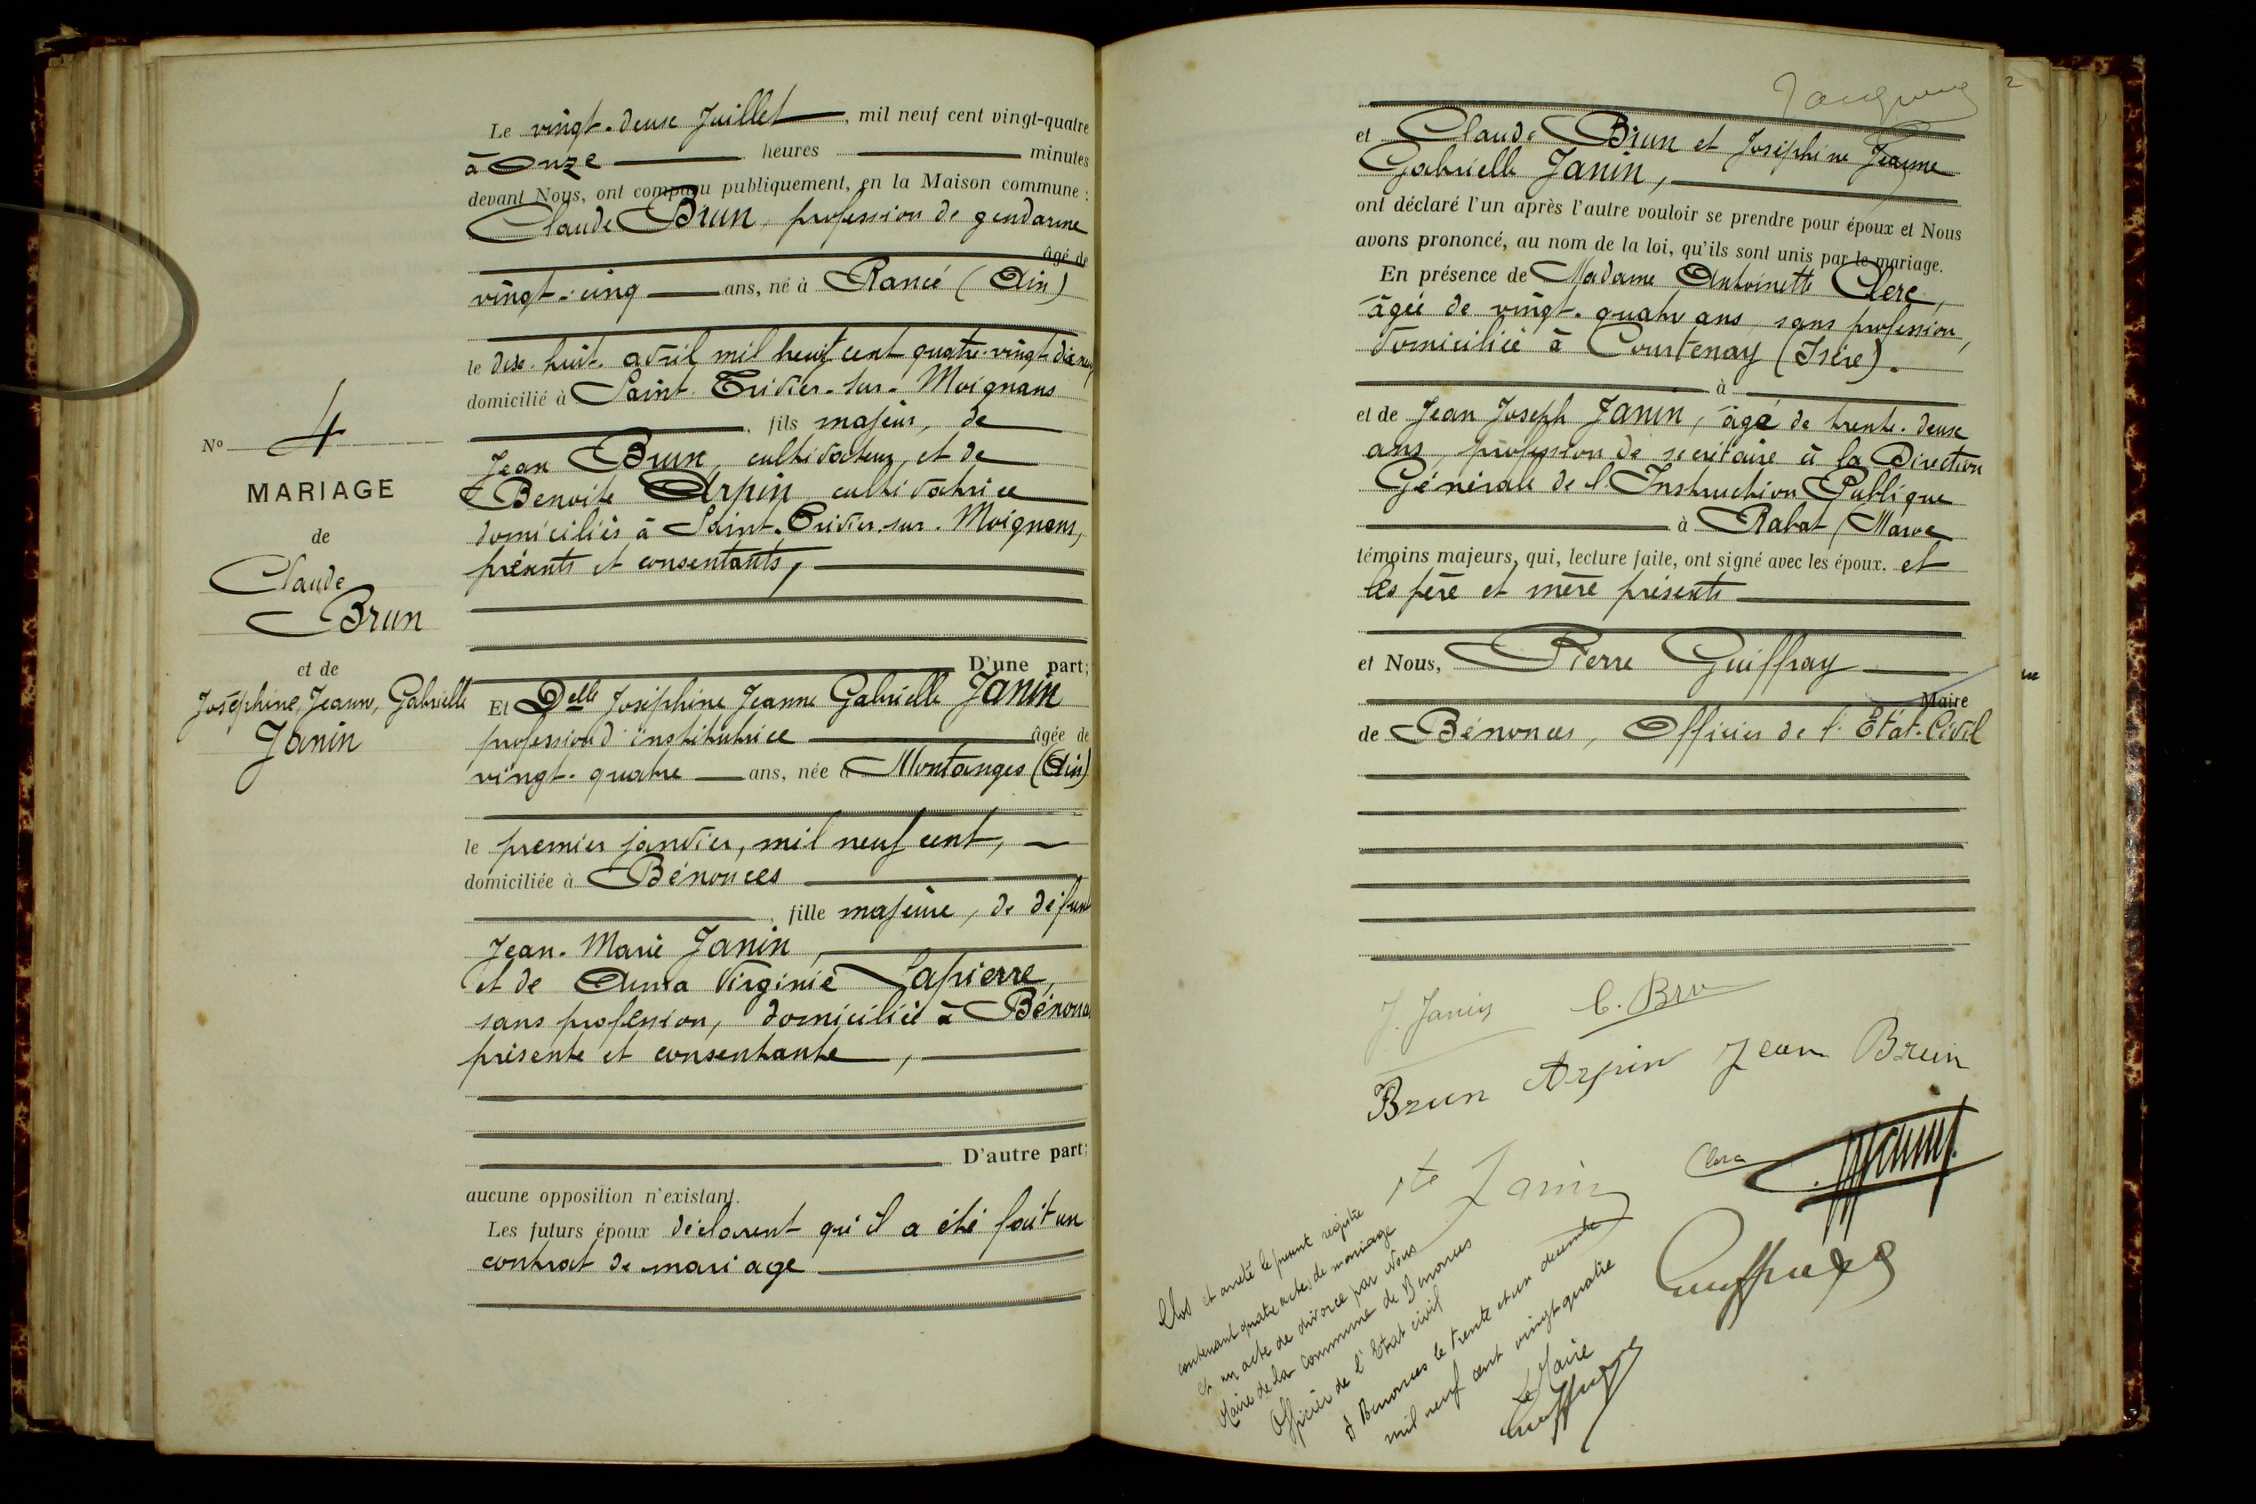 Le vingt-deux Juillet, mil neuf cent vingt-quatre
à Onze heures minutes
devant Nous, ont comparu publiquement, en la Maison commune :
Claude Brun, profession de gendarme
âgé de
vingt-cinq ans, né à Rancé (Ain)
le dix-huit avril mil huit cent quatre-vingt-dix neuf
domicilié à Saint-Trivier-sur-Moignans
, fils majeur, de
Jean Brun, cultivateur, et de
Benoite Arpin cultivatrice
domiciliés à Saint-Trivier-sur-Moignans,
présents et consentants,
D'une part;
Et Delle Joséphine Jeanne Gabrielle Janin
profession d'institutrice âgée de
vingt-quatre ans, née à Montanges (Ain)
le premier janvier, mil neuf cent,
domiciliée à Bénonces
, fille majeure, de défunt
Jean-Marie Janin,
et de Anna Virginie Lapierre,
sans profession, domiciliée à Bénonces
présente et consentante,
D'autre part;
aucune opposition n'existant.
Les futurs époux déclarent qu'il a été fait un
contrat de mariage
No 4
MARIAGE
de
Claude
Brun
et de
Joséphine, Jeanne, Gabrielle
Janin
et Claude Brun et Joséphine Jeanne
Gabrielle Janin,
ont déclaré l'un après l'autre vouloir se prendre pour époux et Nous
avons prononcé, au nom de la loi, qu'ils sont unis par le mariage.
En présence de Madame Antoinette Clerc,
âgée de vingt-quatre ans, sans profession,
domiciliée à Courtenay (Isère).
à
et de Jean Joseph Janin, âgé de trente-deux
ans, profession de secrétaire à la Direction
Générale de l'Instruction Publique
à Rabat (Maroc
témoins majeurs, qui, lecture faite, ont signé avec les époux. et
les père et mère présents
et Nous, Pierre Guiffray
Maire
de Bénonces, Officier de l'Etat-Civil
J. Janin C. Brun
Brun Arpin Jean Brun
Vte Janin
Clerc
Janin
Guiffray
Clos et arrêté le présent registre
contenant quatre actes de mariage
et un acte de divorce par Nous
Maire de la commune de Bénonces
Officier de l'Etat civil
A Bénonces le trente et un décembre
mil neuf cent vingt-quatre
Le Maire
Guiffray